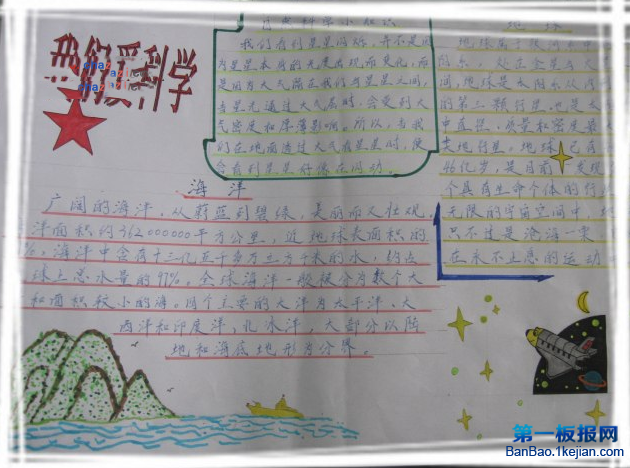 我们爱科学
自然科学小知识
我们看到星星闪烁,并不是因
为星星本身的光度出现变化,而
是因为大气层在我们与星星之间,
当星光通过大气层时,会受到大
气密度和厚薄影响。所以,当我
们在地面透过大气看星星时,便
会看到星星好像在闪动。
地球
地球属于银河系中
阳系,处在金星与
间,地球是太阳系从内
的第三颗行星,也是太
中直径、质量和密度最
类地行星,地球已有
46亿岁,是目前 发现
个具有生命个体的行
无限的宇宙空间中
只不过是沧海一粟
在永不止息的运动
海洋
广阔的海洋,从蔚蓝到碧绿,美丽而又壮观。
洋面积约362000000平方公里,近地球表面积的
%。海洋中含有十三亿五千多万立方千米的水,约占
球上总水量的97%。全球海洋一般被分为数个大
和面积较小的海。四个主要的大洋为太平洋、大
西洋和印度洋,北冰洋,大部分以陆
地和海底地形为分界。
第一板报网
BanBao.1kejian.com